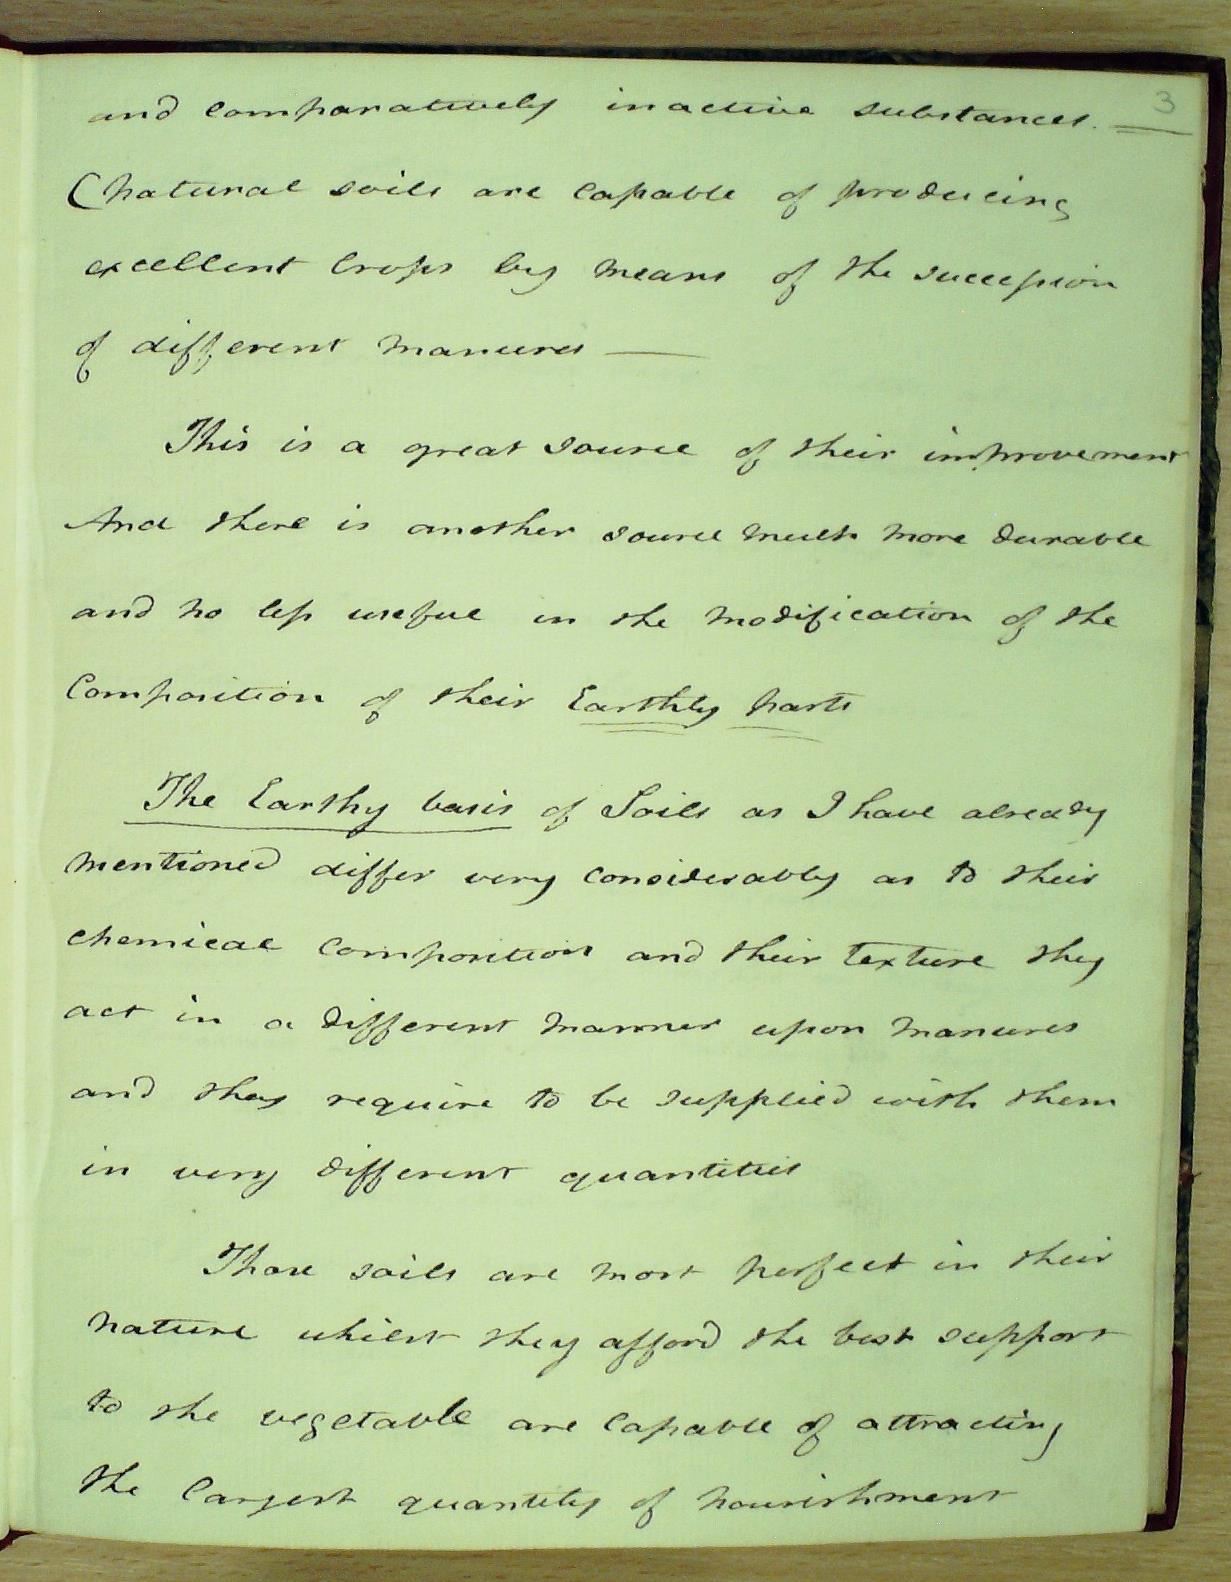 3
and comparatively inactive substances. —
(Natural soils are capable of producing
excellent crops by means of the succession
of different manures —
This is a great source of their improvement
And there is another source much more durable
and no less useful in the modification of the
Composition of their Earthly parts
The Earthy basis of Soils as I have already
mentioned differ very considerably as to their
chemical composition and their texture they
act in a different manner upon manures
and they require to be supplied with them
in very different quantities
Those soils are most perfect in their
nature whilst they afford the best support
to the vegetable are capable of attracting
the largest quantity of nourishment